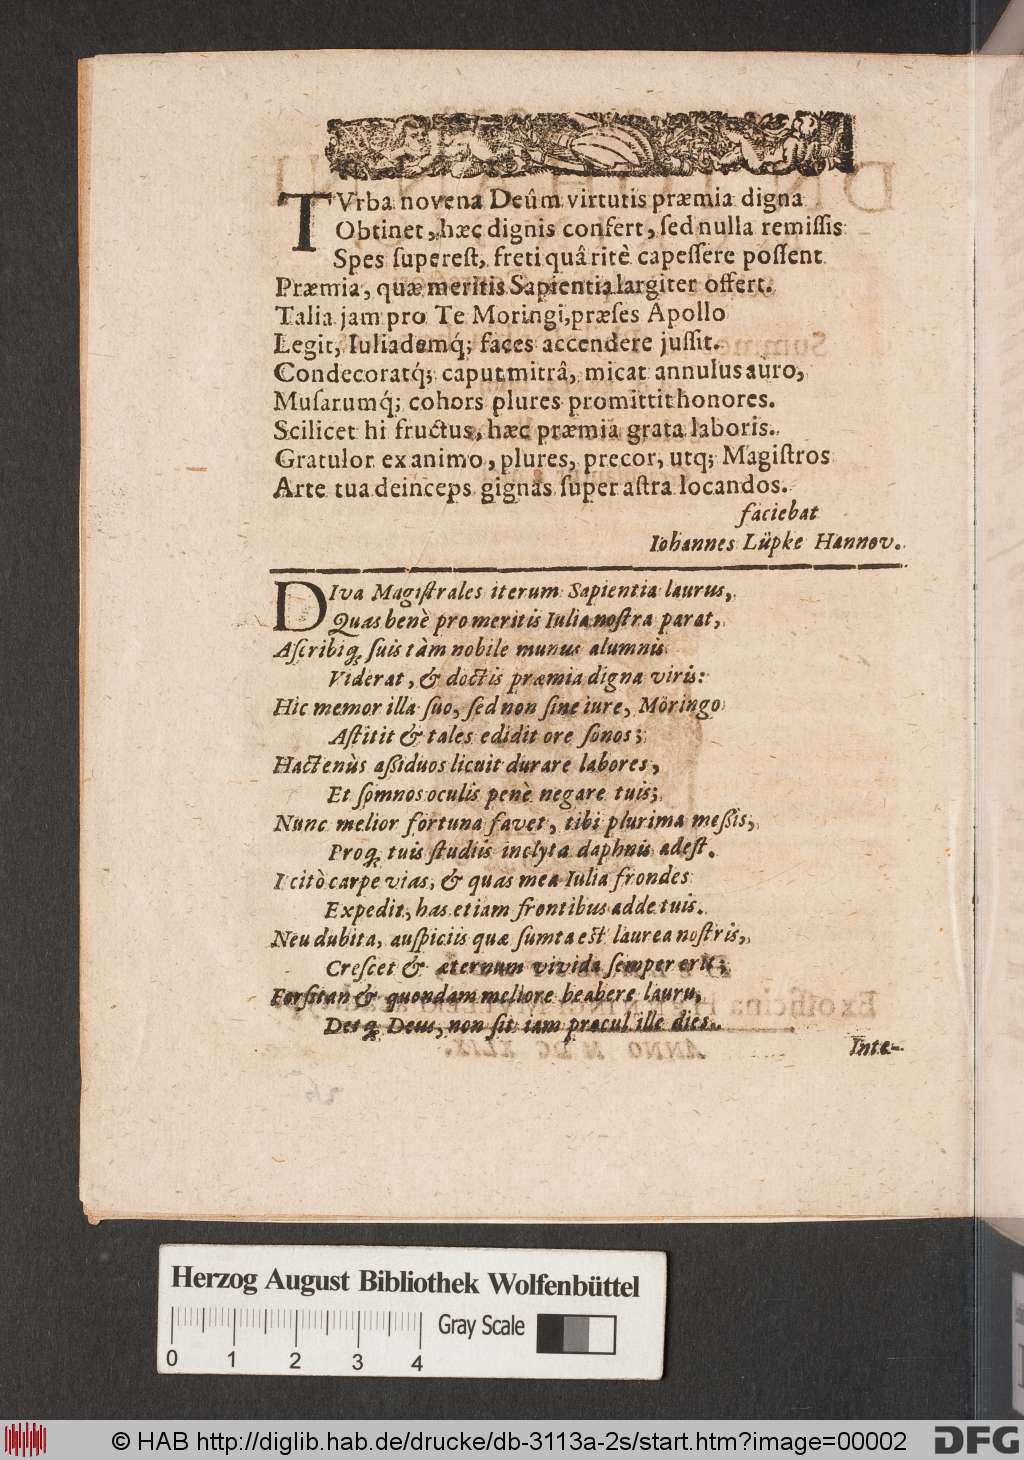 TVrba novena Deûm virtutis præmia digna
Obtinet, hæc dignis confert, ſed nulla remiſſis
Spes ſupereſt, freti quâ ritè capeſſere poſſent
Præmia, quæ meritis Sapientia largiter offert.
Talia jam pro Te Moringi, præſes Apollo
Legit, Iuliademq́; faces accendere juſſit.
Condecoratq́; caput mitrâ, micat annulus auro,
Muſarumq́; cohors plures promittit honores.
Scilicet hi fructus, hæc præmia grata laboris.
Gratulor ex animo, plures, precor, utq; Magiſtros
Arte tua deinceps gignas ſuper aſtra locandos.
faciebat
Iohannes Lüpke Hannov.
DIva Magiſtrales iterum Sapientia laurus,
Quas benè pro meritis Iulia noſtra parat,
Aſcribiq; ſuis tàm nobile munus alumnis
Viderat, & doctis præmia digna viris:
Hic memor illa ſuo, ſed non ſine iure, Möringo
Aſtitit & tales edidit ore ſonos;
Hactenùs aßiduos licuit durare labores,
Et ſomnos oculis penè negare tuis;
Nunc melior fortuna favet, tibi plurima meßis,
Proq; tuis ſtudiis inclyta daphnis adeſt.
I citò carpe vias, & quas mea Iulia frondes
Expedit, has etiam frontibus adde tuis.
Neu dubita, auſpiciis quæ ſumta eſt laurea noſtris,
Creſcet & æternum vivida ſemper erit;
Forſitan & quondam meliore beabere lauru,
Detq; Deus, non ſit iam procul ille dies.
Inte-
Herzog August Bibliothek Wolfenbüttel
Gray Scale
0 1 2 3 4
© HAB http://diglib.hab.de/drucke/db-3113a-2s/start.htm?image=00002
DFG